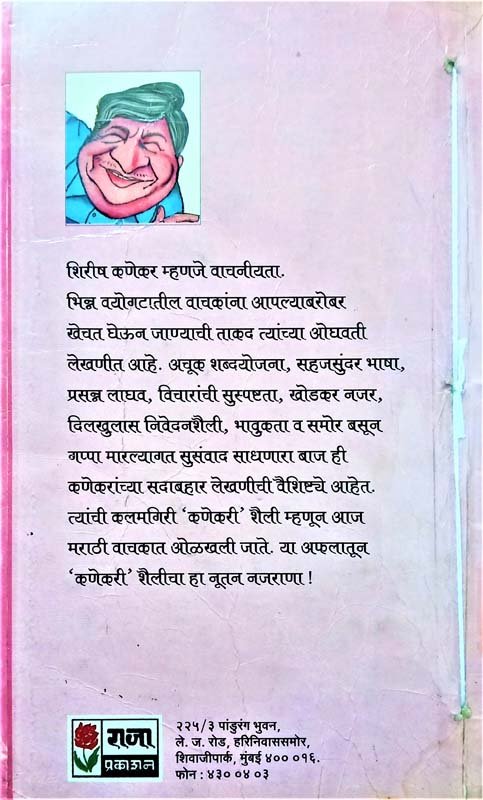 शिरीष कणेकर म्हणजे वाचनीयता.
भिन्न वयोगटातील वाचकांना आपल्याबरोबर
खेचत घेऊन जाण्याची ताकद त्यांच्या ओघवती
लेखणीत आहे. अचूक शब्दयोजना, सहजसुंदर भाषा,
प्रसन्न लाघव, विचारांची सुस्पष्टता, खोडकर नजर,
दिलखुलास निवेदनशैली, भावुकता व समोर बसून
गप्पा मारल्यागत सुसंवाद साधणारा बाज ही
कणेकरांच्या सदाबहार लेखणीची वैशिष्ट्ये आहेत.
त्यांची कलमगिरी ‘कणेकरी’ शैली म्हणून आज
मराठी वाचकात ओळखली जाते. या अफलातून
‘कणेकरी’ शैलीचा हा नूतन नजराणा !
राजा
प्रकाशन
२२५/३ पांडुरंग भुवन,
ले. ज. रोड, हरिनिवाससमोर,
शिवाजीपार्क, मुंबई ४०० ०१६.
फोन : ४३० ०४ ०३